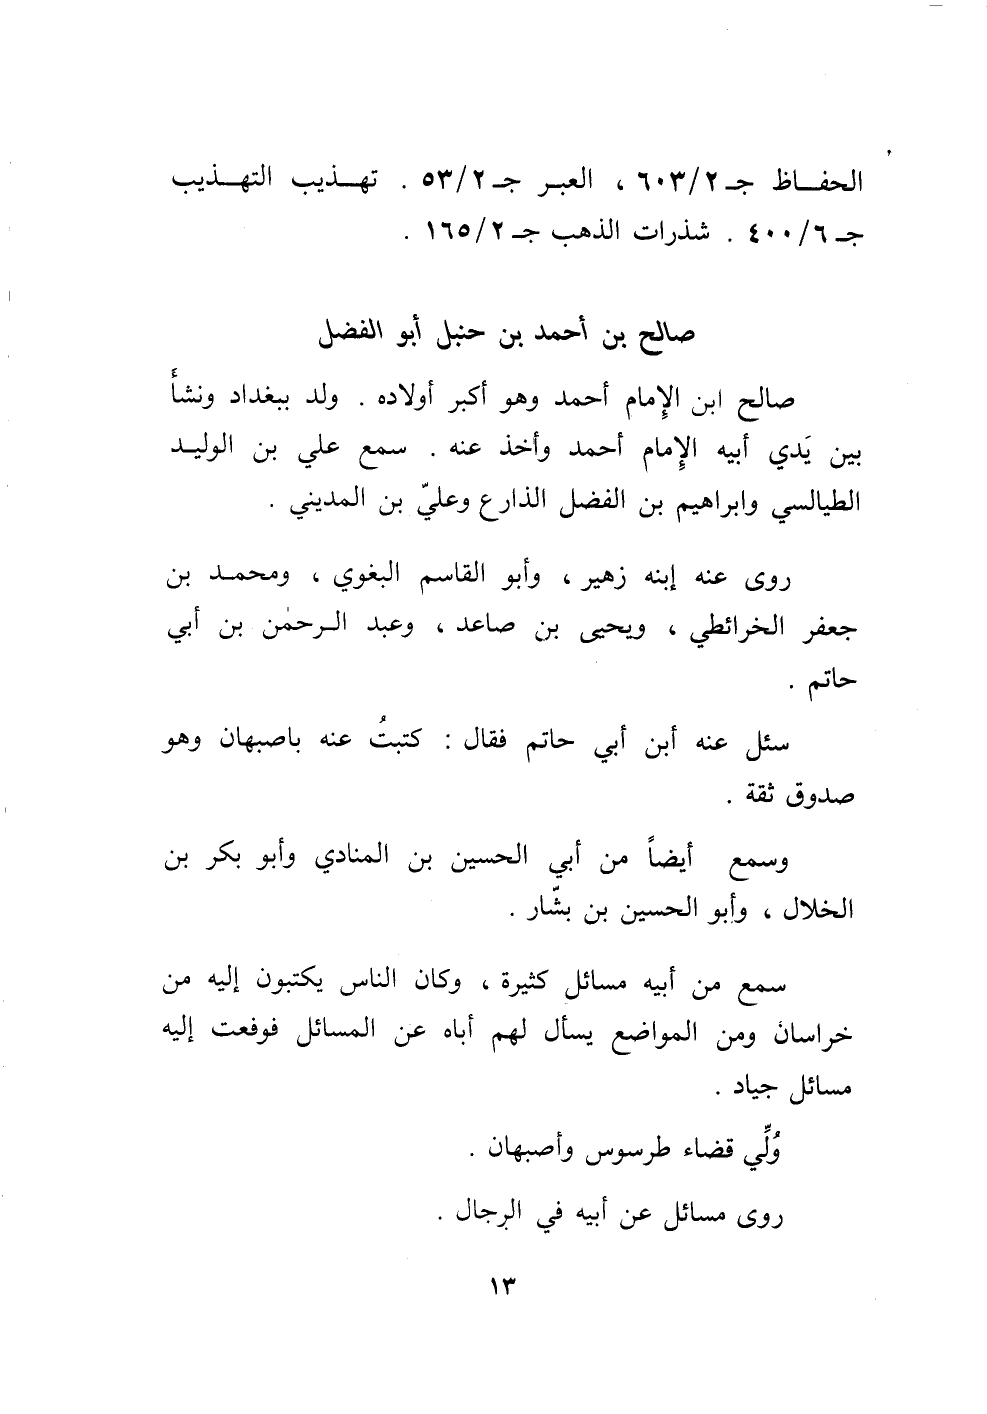 الحفاظ جـ ٦٠٣/٢ ، العبر جـ ٥٣/٢ . تهذيب التهذيب
جـ ٤٠٠/٦ . شذرات الذهب جـ ١٦٥/٢ .
صالح بن أحمد بن حنبل أبو الفضل
صالح ابن الإمام أحمد وهو أكبر أولاده . ولد ببغداد ونشأ
بين يَدي أبيه الإمام أحمد وأخذ عنه . سمع علي بن الوليد
الطيالسي وابراهيم بن الفضل الذارع وعليّ بن المديني .
روى عنه إبنه زهير ، وأبو القاسم البغوي ، ومحمد بن
جعفر الخرائطي ، ويحيى بن صاعد ، وعبد الرحمٰن بن أبي
حاتم .
سئل عنه أبن أبي حاتم فقال : كتبتُ عنه باصبهان وهو
صدوق ثقة .
وسمع أيضاً من أبي الحسين بن المنادي وأبو بكر بن
الخلال ، وأبو الحسين بن بشّار .
سمع من أبيه مسائل كثيرة ، وكان الناس يكتبون إليه من
خراسان ومن المواضع يسأل لهم أباه عن المسائل فوقعت إليه
مسائل جياد .
وُلِّي قضاء طرسوس وأصبهان .
روى مسائل عن أبيه في الرجال .
١٣